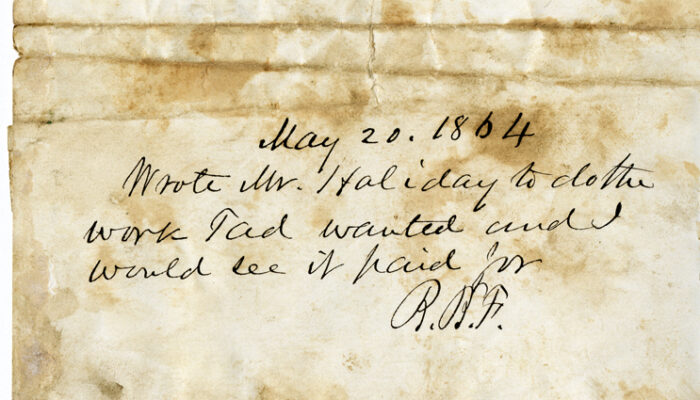 May 20. 1864
Wrote Mr. Haliday to do the
work Tad wanted and I
would see it paid for
R.B.F.